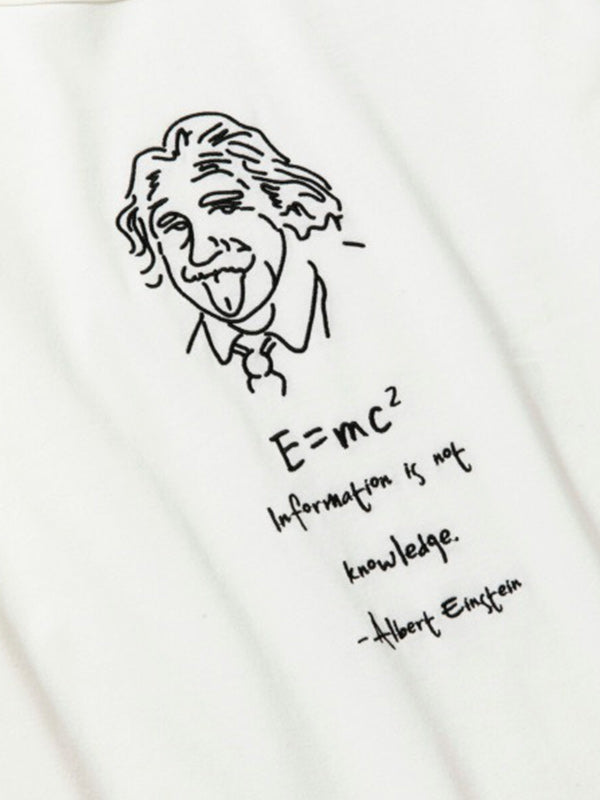 E=mc²
Information is not
knowledge.
-Albert Einstein